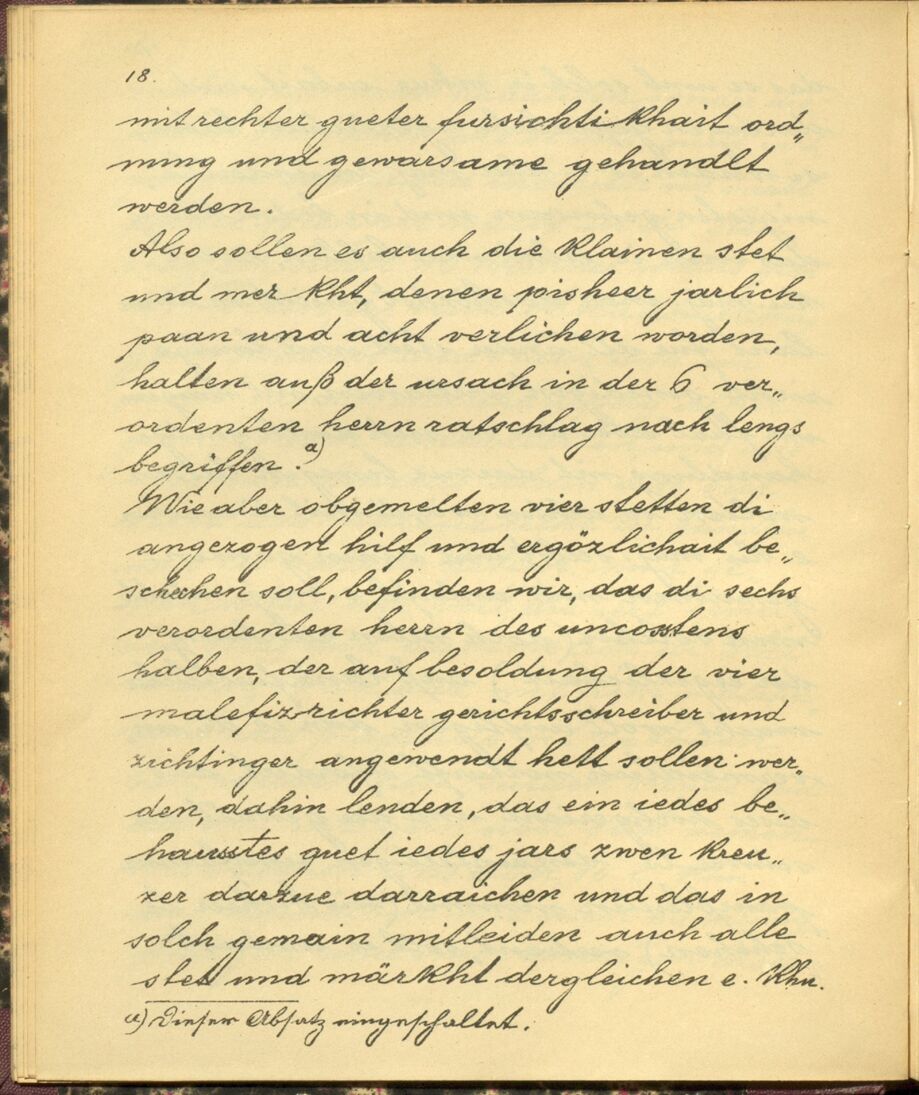 18.
mit rechter gueter fursichtikhait ord„
nung und gewarsame gehandlt
werden.
Also sollen es auch die klainen stet
und merkht, denen pisheer jarlich
paan und acht verlichen worden,
halten auß der ursach in der 6 ver„
ordenten herrn ratschlag nach lengs
begriffen. a)
Wie aber obgemelten vier stetten di
angezogen hilf und ergözlichait be„
schechen soll, befinden wir, das di sechs
verordenten herrn des uncosstens
halben, der auf besoldung der vier
malefizrichter gerichtsschreiber und
zichtinger angewendt hett sollen wer„
den, dahin lenden, das ein iedes be„
hausstes guet iedes jars zwen kreu„
zer darzue darraichen und das in
solch gemain mitleiden auch alle
stet und märkht dergleichen e. khu.
a) Dieser Absatz eingeschaltet.